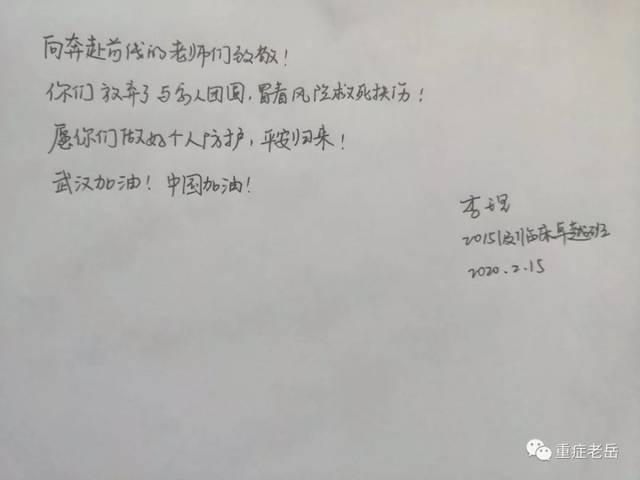 向奔赴前线的老师们致敬！
你们放弃了与家人团圆，冒着风险救死扶伤！
愿你们做好个人防护，平安归来！
武汉加油！中国加油！
李琨
2015级临床卓越班
2020.2.15
重症老岳